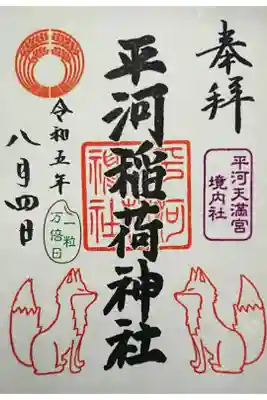 奉拝
平河天満宮
境内社
平河稲荷神社
令和五年
八月四日
一粒
万倍日